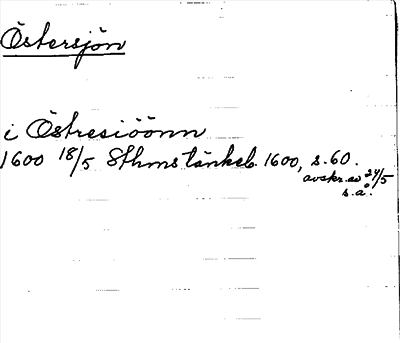 Östersjön
i Östresiöönn
1600 18/5 Sthms tänkeb. 1600, s. 60.
avskr. av 24/5
s. å.